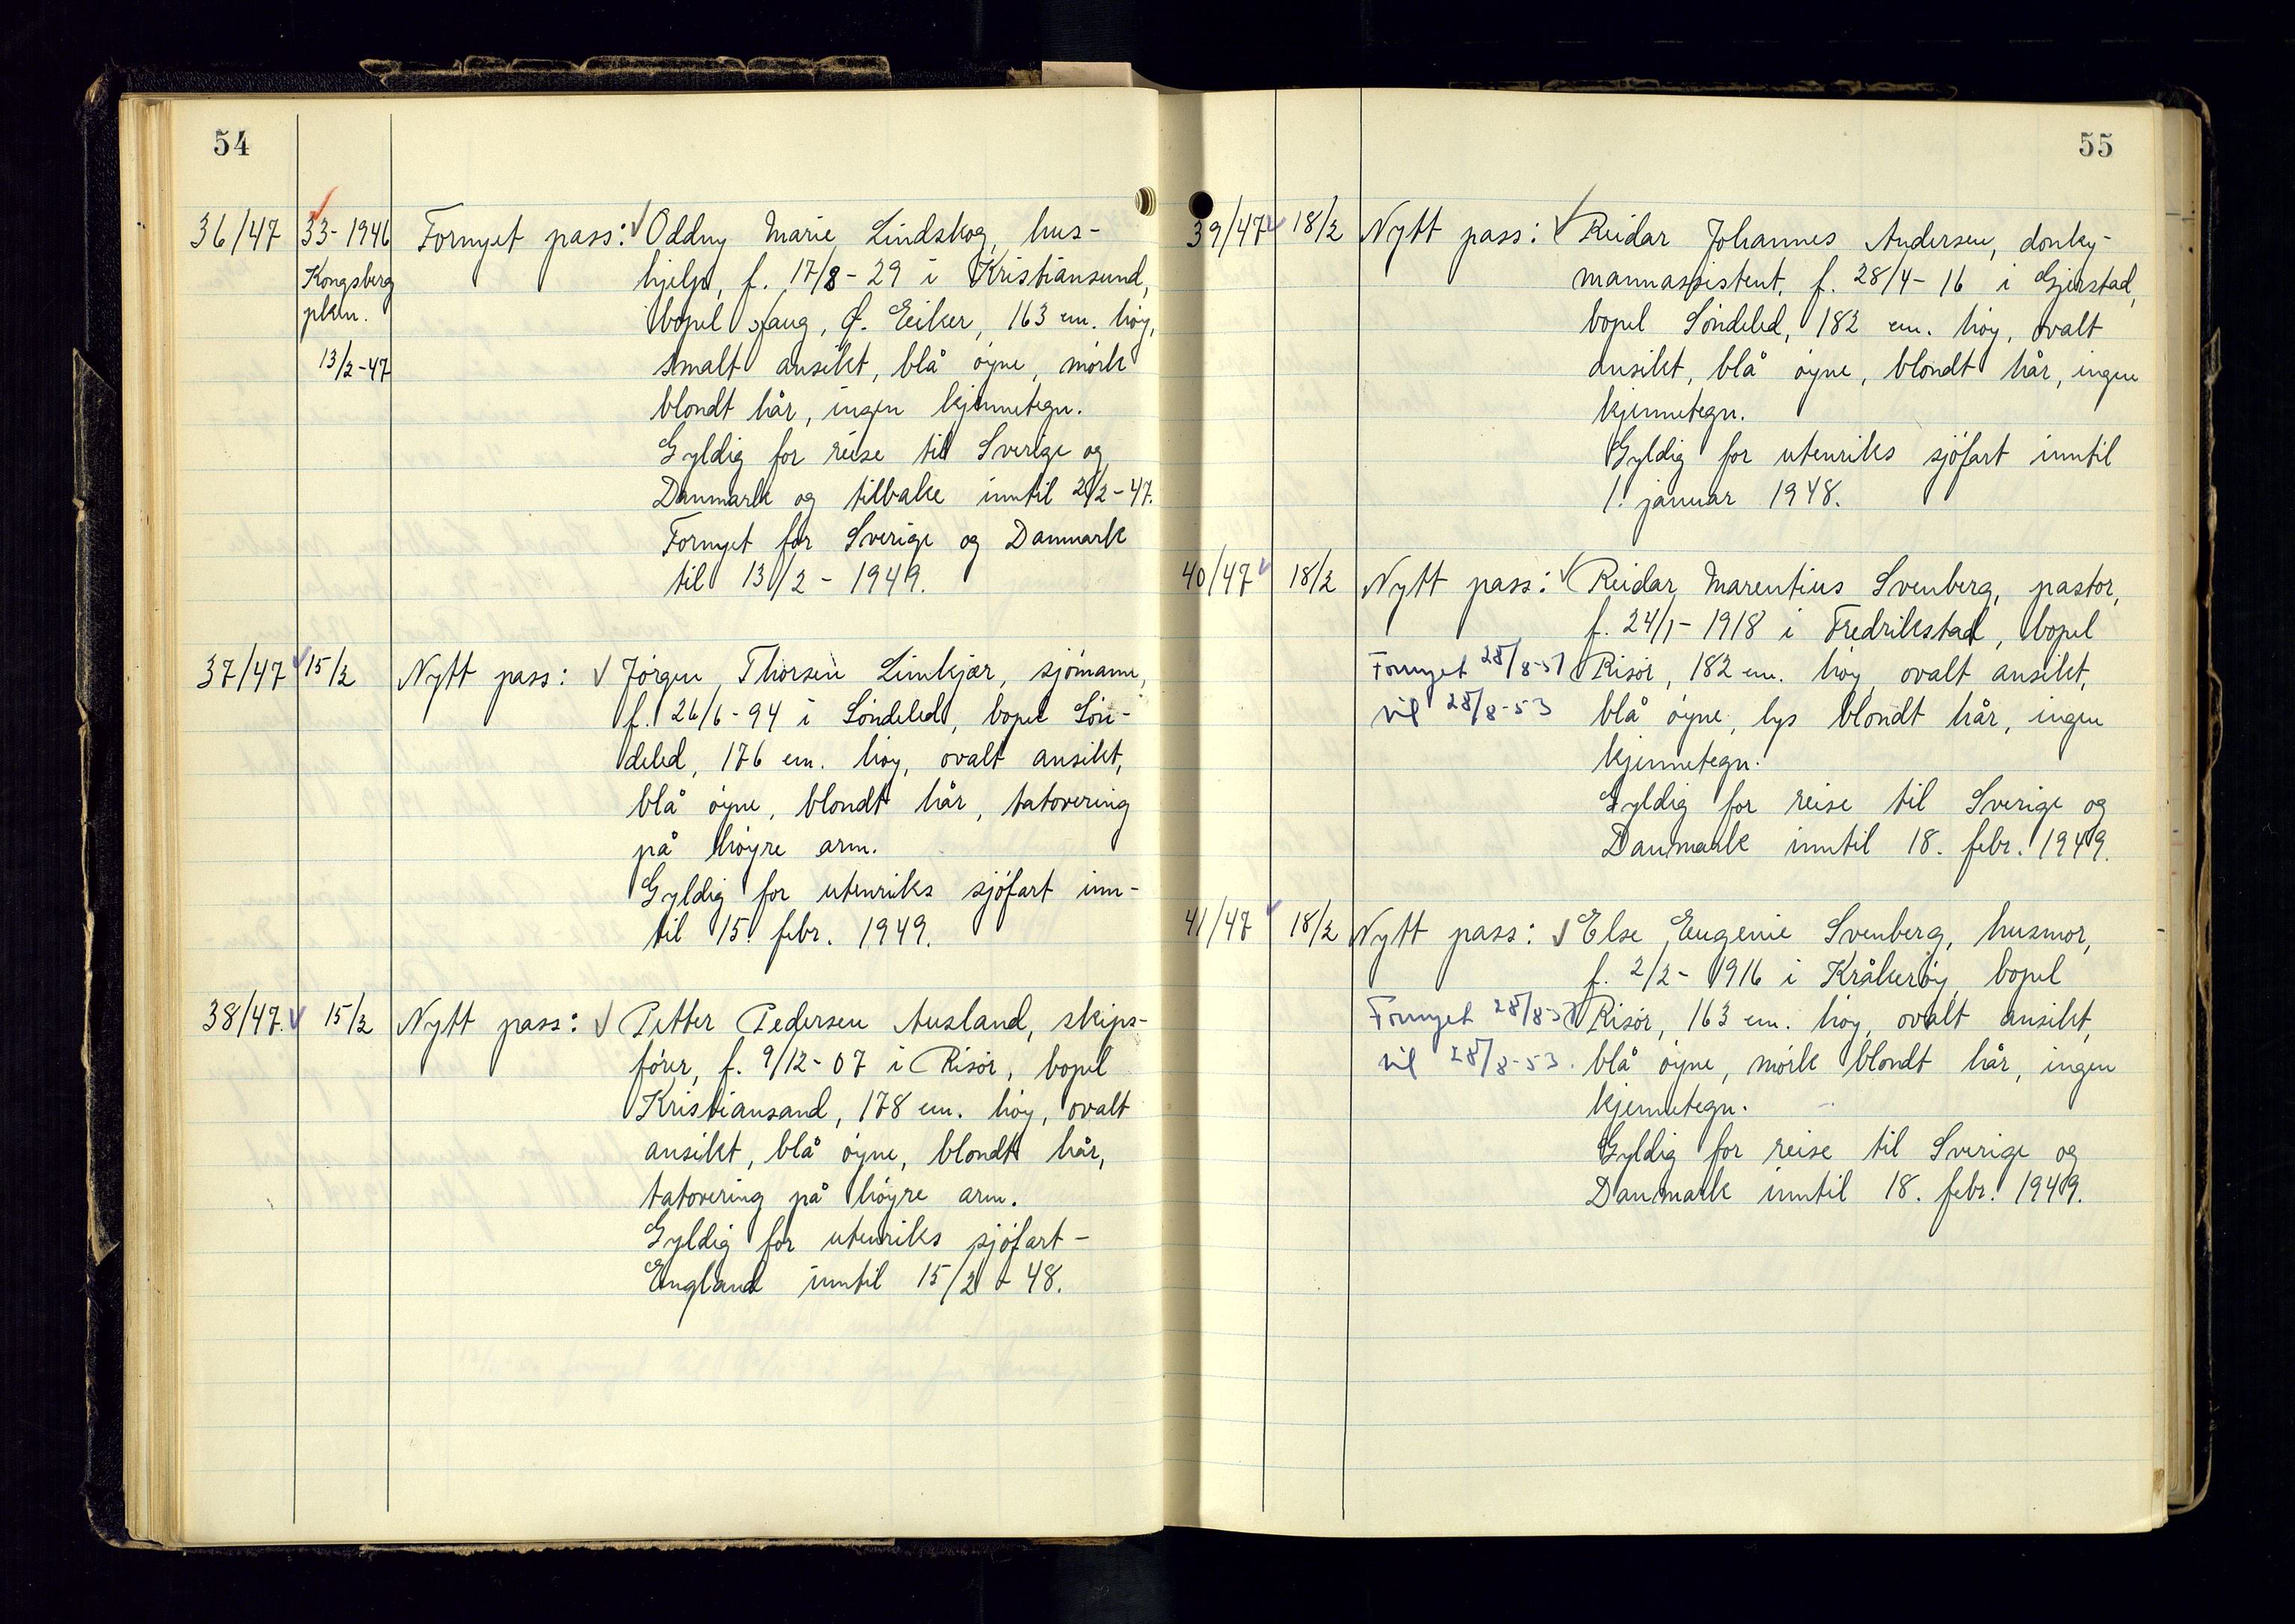 54
36/47 33-1946 Fornyet pass: Oddny Marie Lindskog, hus-
Kongsberg hjelp, f. 17/8-29 i Kristiansund,
pkm. bopel Haug, Ø. Eiker, 163 cm. høy,
13/2-47 smalt ansikt, blå øyne, mørk
blondt hår, ingen kjennetegn.
Gyldig for reise til Sverige og
Danmark og tilbake inntil 2/2-47.
Fornyet for Sverige og Danmark
til 13/2 - 1949.
37/47 15/2 Nytt pass: Jörgen Thorsen Limkjær, sjömann,
f. 26/6-94 i Söndeled, bopel Sön-
deled, 176 cm. höy, ovalt ansikt,
blå öyne, blondt hår, tatovering
på höyre arm.
Gyldig for utenriks sjöfart inn-
til 15. febr. 1949.
38/47. 15/2 Nytt pass: Petter Pedersen Ausland, skips-
förer, f. 9/12-07 i Risör, bopel
Kristiansand, 178 cm. höy, ovalt
ansikt, blå öyne, blondt hår,
tatovering på höyre arm.
Gyldig for utenriks sjöfart -
England inntil 15/2 - 48.
55
39/47 18/2 Nytt pass: Reidar Johannes Andersen, donky-
mannassistent, f. 28/4-16 i Gjerstad,
bopel Söndeled, 182 cm. höy, ovalt
ansikt, blå öyne, blondt hår, ingen
kjennetegn.
Gyldig for utenriks sjöfart inntil
1. januar 1948.
40/47 18/2 Nytt pass: Reidar Marentius Svenberg, pastor,
f. 24/1-1918 i Fredrikstad, bopel
Fornyet 28/8-51 Risör, 182 cm. höy, ovalt ansikt,
til 28/8-53 blå öyne, lys blondt hår, ingen
kjennetegn.
Gyldig for reise til Sverige og
Danmark inntil 18. febr. 1949.
41/47 18/2 Nytt pass: Else Eugenie Svenberg, husmor,
f. 2/2-1916 i Kråkeröy, bopel
Fornyet 28/8-51 Risör, 163 cm. höy, ovalt ansikt,
til 28/8-53. blå öyne, mörk blondt hår, ingen
kjennetegn.
Gyldig for reise til Sverige og
Danmark inntil 18. febr. 1949.